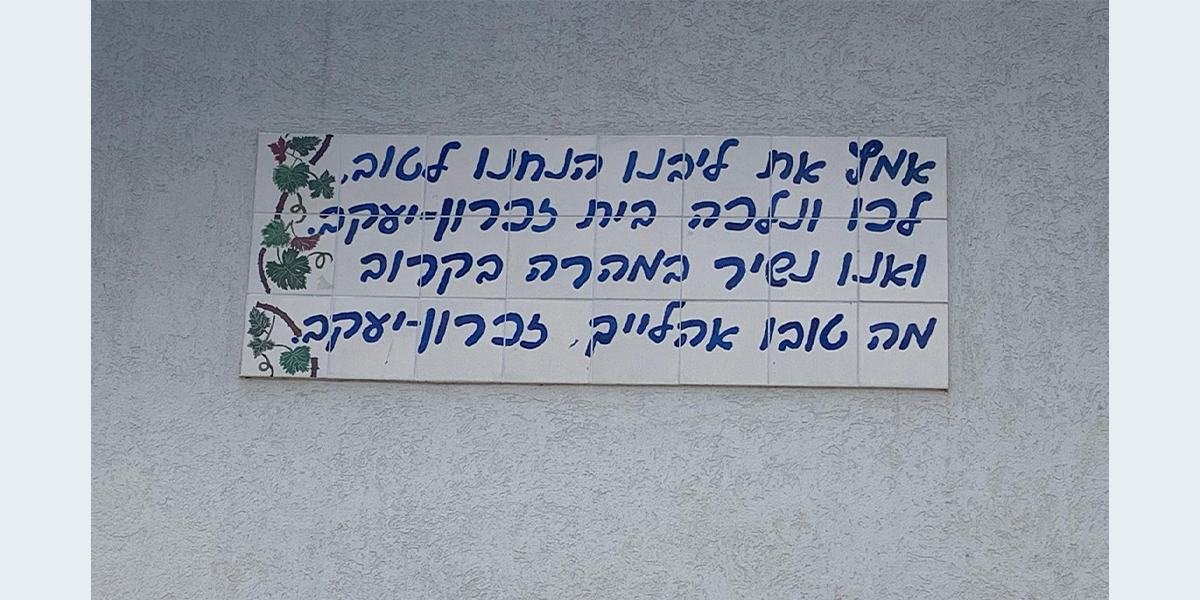 אמץ את ליבנו הנחנו לטוב,
לכו ונלכה בית זכרון-יעקב.
ואנו נשיר במהרה בקרוב
מה טובו אהלייך, זכרון-יעקב.